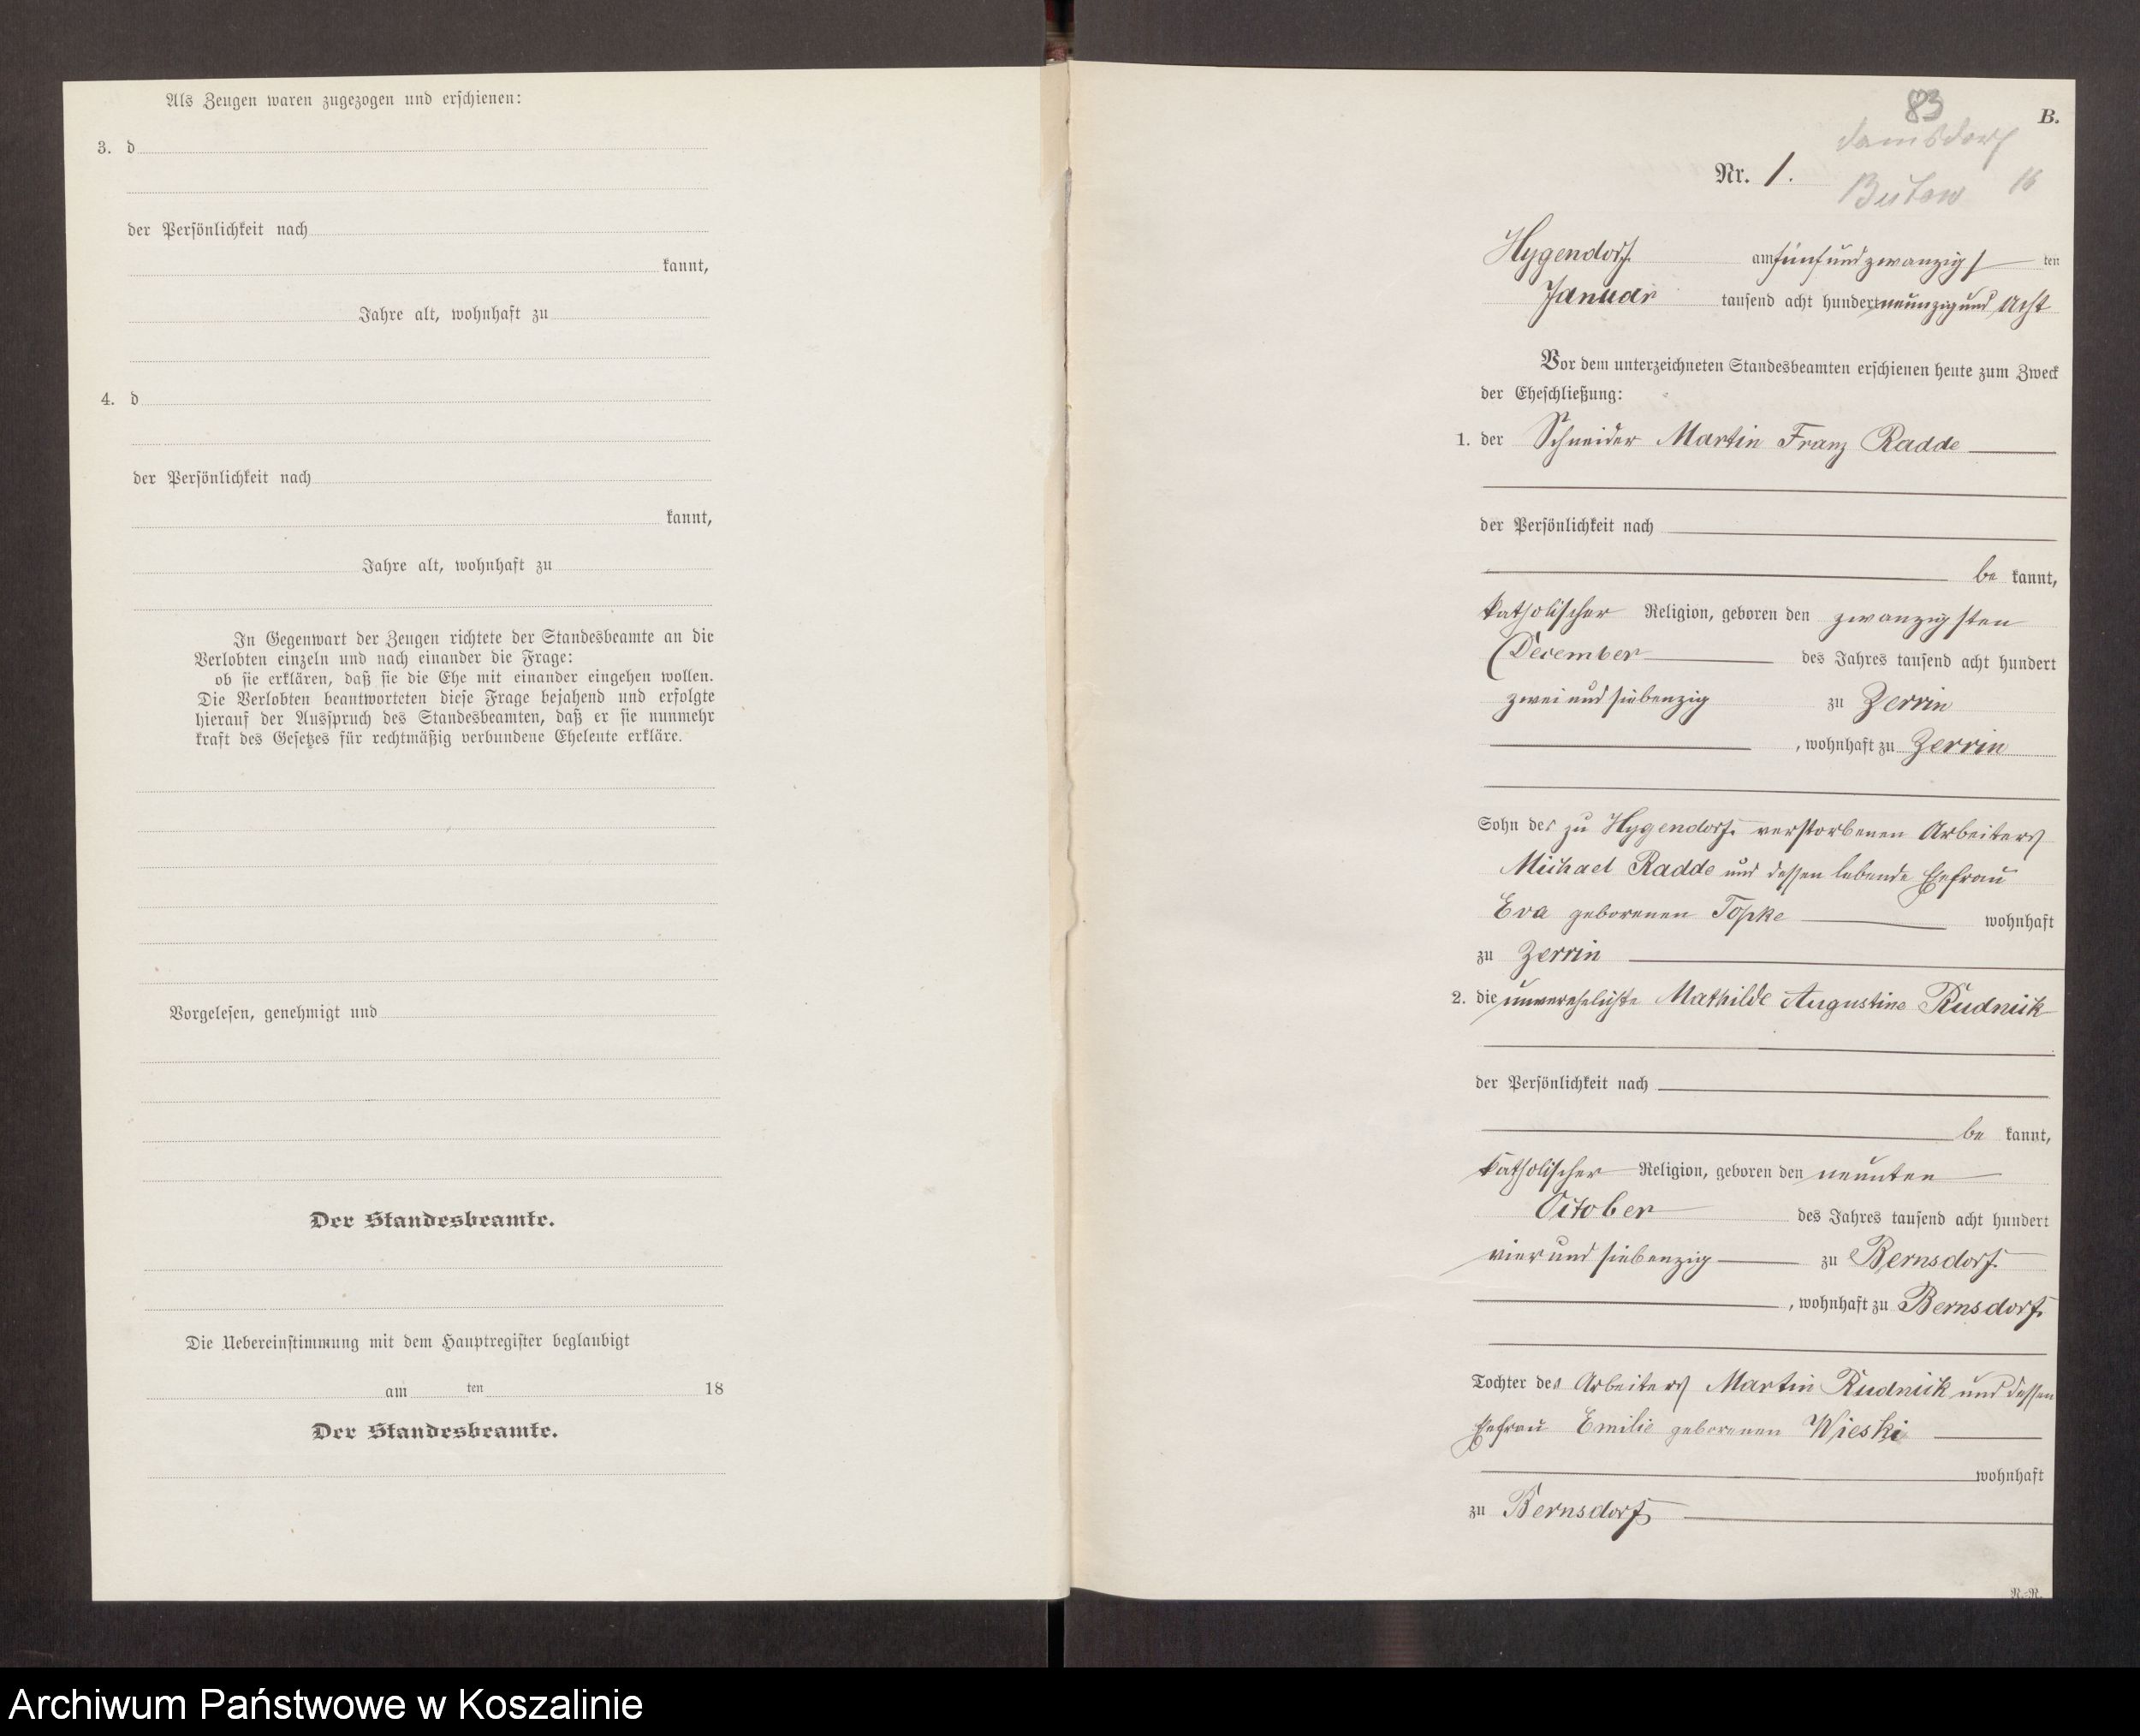 Als Zeugen waren zugezogen und erschienen:
3. d
der Persönlichkeit nach
kannt,
Jahre alt, wohnhaft zu
4. d
der Persönlichkeit nach
kannt,
Jahre alt, wohnhaft zu
In Gegenwart der Zeugen richtete der Standesbeamte an die
Verlobten einzeln und nach einander die Frage:
ob sie erklären, daß sie die Ehe mit einander eingehen wollen.
Die Verlobten beantworteten diese Frage bejahend und erfolgte
hierauf der Ausspruch des Standesbeamten, daß er sie nunmehr
kraft des Gesetzes für rechtmäßig verbundene Eheleute erkläre.
Vorgelesen, genehmigt und
Der Standesbeamte.
Die Uebereinstimmung mit dem Hauptregister beglaubigt
am ten 18
Der Standesbeamte.
83
B.
Damsdorf
Nr. 1.
Butow 16
Hygendorf am fünfundzwanzigsten
Januar tausend acht hundert neunzig und Acht
Vor dem unterzeichneten Standesbeamten erschienen heute zum Zweck
der Eheschließung:
1. der Schneider Martin Franz Radde
der Persönlichkeit nach
be kannt,
katholischer Religion, geboren den zwanzigsten
December des Jahres tausend acht hundert
zwei und siebenzig zu Zerrin
, wohnhaft zu Zerrin
Sohn des zu Hygendorf verstorbenen Arbeiters
Michael Radde und dessen lebende Ehefrau
Eva geborenen Topke wohnhaft
zu Zerrin
2. die unverehelichte Mathilde Augustine Rudnick
der Persönlichkeit nach
be kannt,
katholischer Religion, geboren den neunten
October des Jahres tausend acht hundert
vier und siebenzig zu Bernsdorf
, wohnhaft zu Bernsdorf
Tochter des Arbeiters Martin Rudnick und dessen
Ehefrau Emilie geborenen Wieski
wohnhaft
zu Bernsdorf
R.-R.
Archiwum Państwowe w Koszalinie